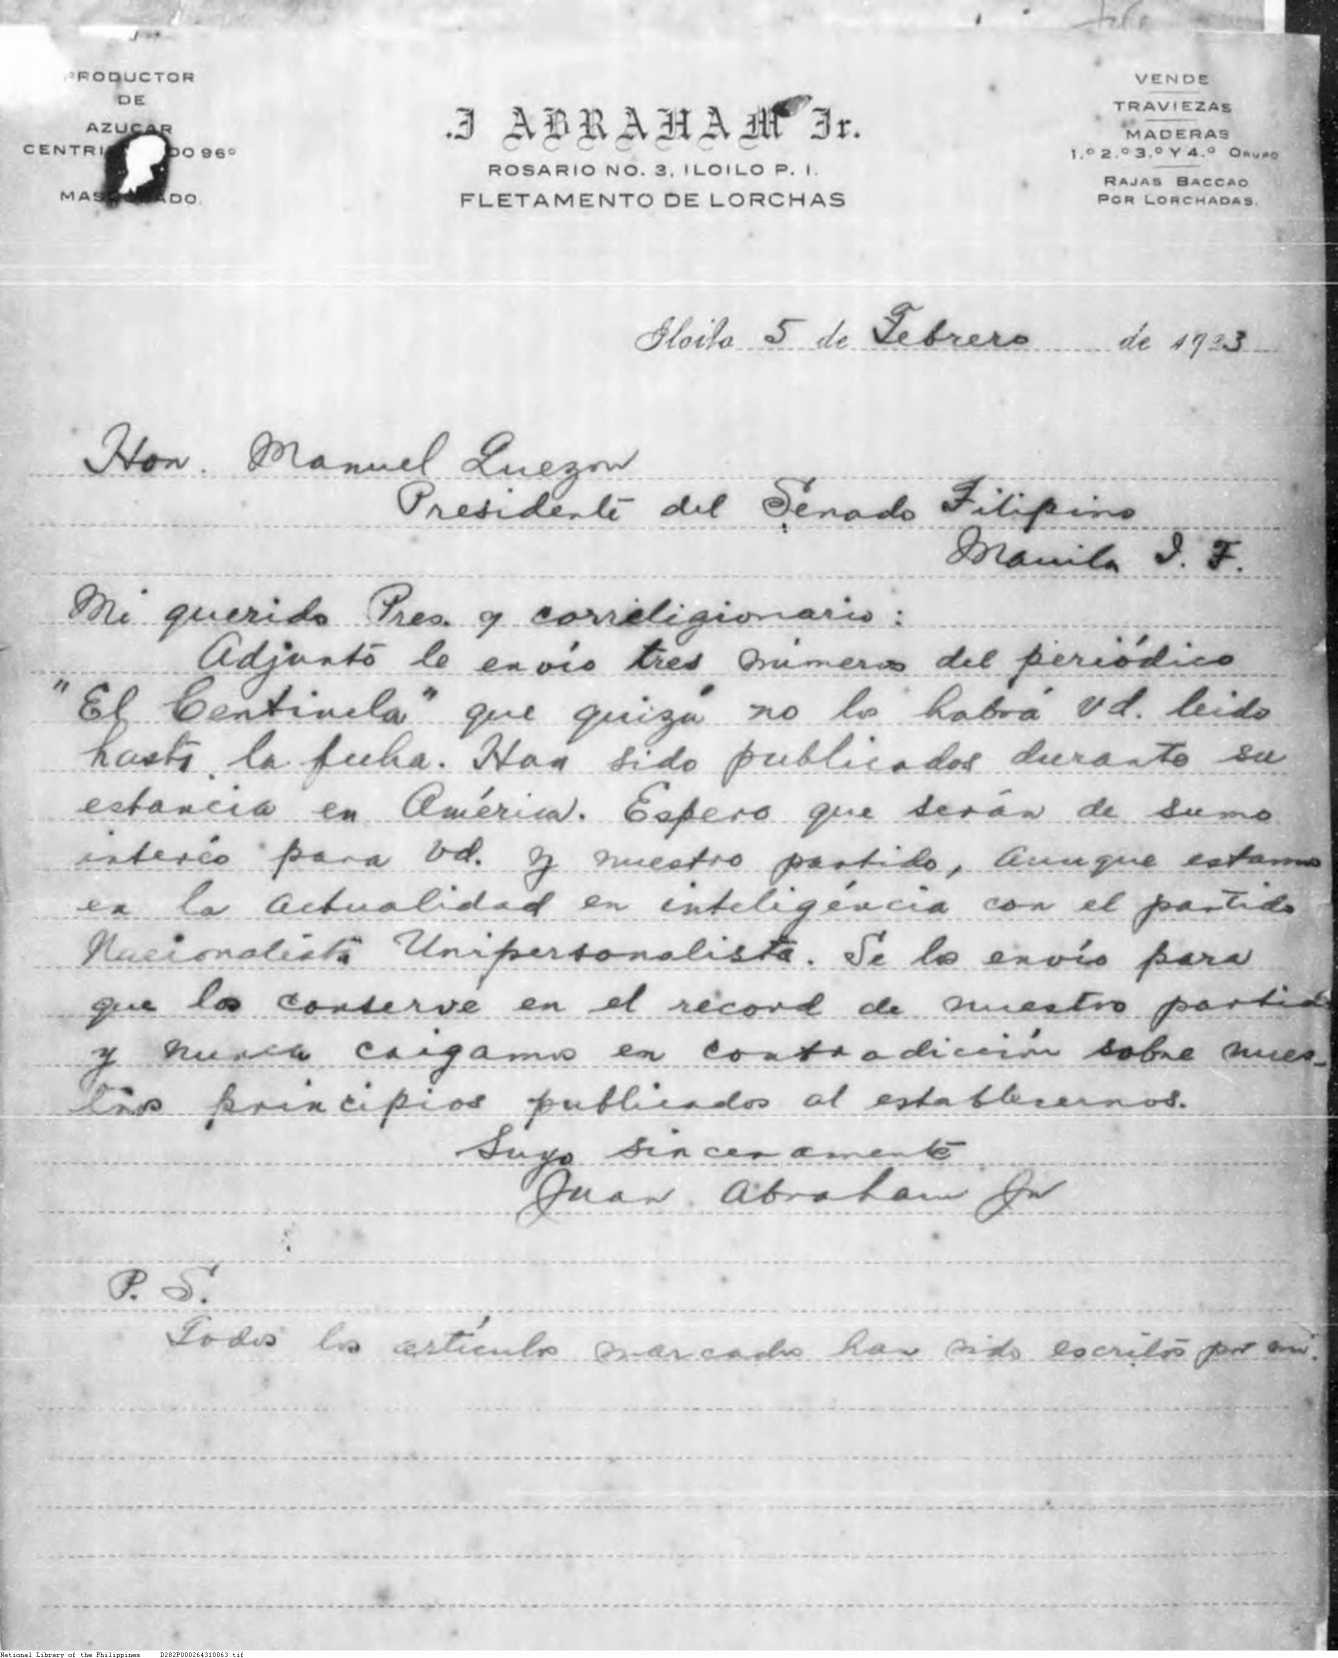 PRODUCTOR
DE
AZUCAR
CENTRI DO 96º
MAS ADO.
.J ABRAHAM Jr.
ROSARIO NO. 3, ILOILO P. I.
FLETAMENTO DE LORCHAS
VENDE
TRAVIEZAS
MADERAS
1.º 2.º 3.º Y 4.º GRUPO
RAJAS BACCAO
POR LORCHADAS.
Iloilo 5 de Febrero de 1923
Hon. Manuel Quezon
Presidente del Senado Filipino
Manila I. F.
Mi querido Pres. y correligionario:
Adjunto le envío tres números del periódico
"El Centinela" que quizá no lo habrá Vd. leido
hasta la fecha. Han sido publicados durante su
estancia en América. Espero que serán de sumo
interés para Vd. y nuestro partido, aunque estamos
en la actualidad en inteligéncia con el partido
Nacionalista Unipersonalista. Se los envío para
que los conserve en el record de nuestro partido
y nunca caigamos en contradicción sobre nues-
tros principios publicados al establecernos.
Suyo sinceramente
Juan Abraham Jr
P. S.
Todos los artículos marcados han sido escritos por mi.
National Library of the Philippines D282P000264310063.tif